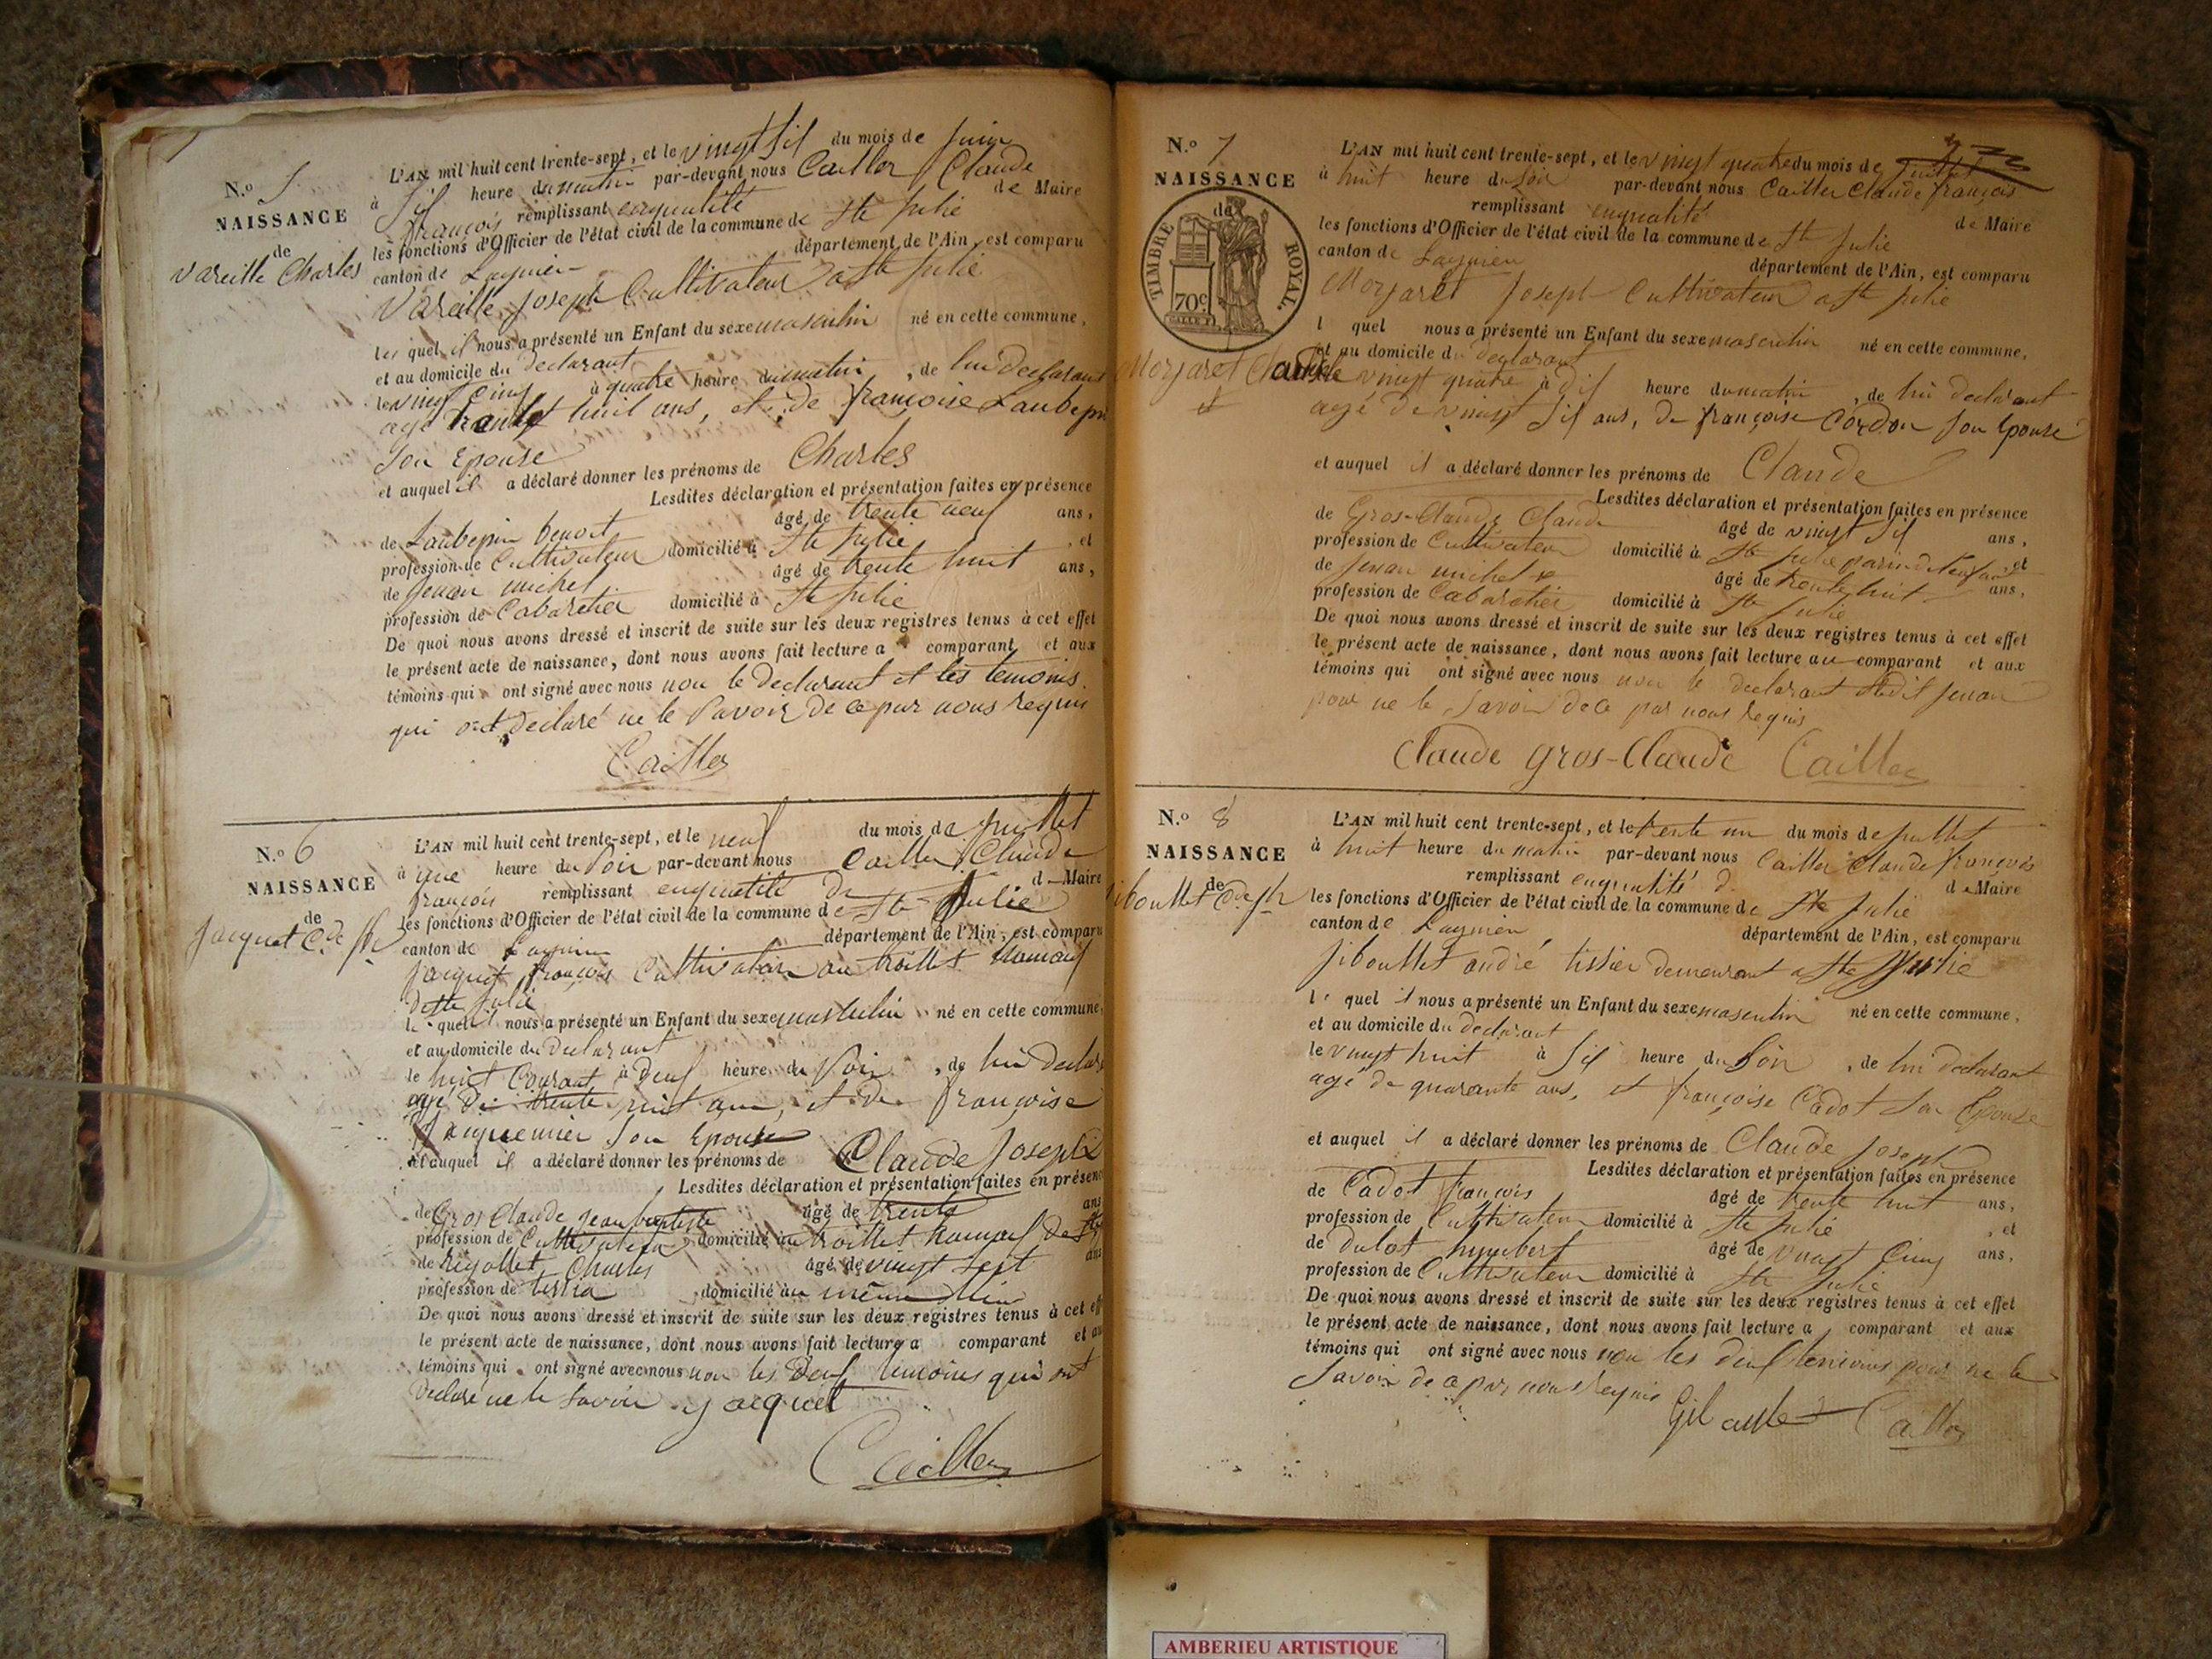 N.º 5
NAISSANCE
de
Vareille Charles
L'AN mil huit cent trente-sept, et le vingt six du mois de juin
à six heure du matin par-devant nous Cailler Claude
françois remplissant en qualité de Maire
les fonctions d'Officier de l'état civil de la commune de Ste Julie
canton de Lagnieu département de l'Ain, est comparu
Vareille Joseph Cultivateur a Ste Julie
lequel il nous a présenté un Enfant du sexe masculin né en cette commune,
et au domicile du declarant
le vingt cinq à quatre heure du matin, de lui declarant
agé trente huit ans, et de françoise Laubepin
son Epouse
et auquel il a déclaré donner les prénoms de Charles
Lesdites déclaration et présentation faites en présence
de Laubepin benoit âgé de trente neuf ans,
profession de Cultivateur domicilié à Ste Julie, et
de Junan michel âgé de trente huit ans,
profession de Cabaretier domicilié à Ste Julie
De quoi nous avons dressé et inscrit de suite sur les deux registres tenus à cet effet
le présent acte de naissance, dont nous avons fait lecture a comparant et aux
témoins qui ont signé avec nous non le declarant et les temoins
qui ont declaré ne le savoir de ce par nous requis
Cailler
N.º 6
NAISSANCE
de
Jacquet Cde Jh
L'AN mil huit cent trente-sept, et le neuf du mois de juillet
à une heure du soir par-devant nous Cailler Claude
françois remplissant en qualité de Maire
les fonctions d'Officier de l'état civil de la commune de Ste Julie
canton de Lagnieu département de l'Ain, est comparu
Jacquet françois Cultivateur au trollet hameau
de Ste Julie
lequel il nous a présenté un Enfant du sexe masculin né en cette commune,
et au domicile du declarant
le huit Courant à deux heure du soir, de lui declara
agé de trente huit ans, et de françoise
son Epouse
et auquel il a déclaré donner les prénoms de Claude Joseph
Lesdites déclaration et présentation faites en présence
de Gros Claude jean baptiste âgé de trente ans
profession de Cultivateur domicilié au trollet hameau de Ste
de Rigollet Charles âgé de vingt sept ans
profession de tissier domicilié au même lieu
De quoi nous avons dressé et inscrit de suite sur les deux registres tenus à cet eff
le présent acte de naissance, dont nous avons fait lecture a comparant et au
témoins qui ont signé avec nous non les deux temoins qui ont
declaré ne le savoir jacquet
Cailler
N.º 7
NAISSANCE
de
TIMBRE ROYAL.
70c
Morjaret Claude
L'AN mil huit cent trente-sept, et le vingt quatre du mois de juillet
à huit heure du soir par-devant nous Cailler Claude françois
remplissant en qualité de Maire
les fonctions d'Officier de l'état civil de la commune de Ste Julie
canton de Lagnieu département de l'Ain, est comparu
Morjaret Joseph Cultivateur a Ste Julie
l quel nous a présenté un Enfant du sexe masculin né en cette commune,
et au domicile du declarant
le vingt quatre à dix heure du matin, de lui declarant
agé de vingt six ans, de françoise Cordon son Epouse
et auquel il a déclaré donner les prénoms de Claude
Lesdites déclaration et présentation faites en présence
de Gros-Claude Claude âgé de vingt six ans,
profession de Cultivateur domicilié à Ste Julie parin de lenfant, et
de Junan michel âgé de trente huit ans,
profession de Cabaretier domicilié à Ste Julie
De quoi nous avons dressé et inscrit de suite sur les deux registres tenus à cet effet
le présent acte de naissance, dont nous avons fait lecture au comparant et aux
témoins qui ont signé avec nous non le declarant et ledit Junan
pour ne le savoir de ce par nous requis
Claude Gros-Claude Cailler
N.º 8
NAISSANCE
de
L'AN mil huit cent trente-sept, et le trente un du mois de juillet
à huit heure du matin par-devant nous Cailler Claude françois
remplissant en qualité de Maire
les fonctions d'Officier de l'état civil de la commune de Ste Julie
canton de Lagnieu département de l'Ain, est comparu
andré tissier demeurant a Ste Julie
le quel il nous a présenté un Enfant du sexe masculin né en cette commune,
et au domicile du declarant
le vingt huit à six heure du soir, de lui declarant
agé de quarante ans, et françoise Cadot son Epouse
et auquel il a déclaré donner les prénoms de Claude Joseph
Lesdites déclaration et présentation faites en présence
de Cadot françois âgé de trente huit ans,
profession de Cultivateur domicilié à Ste Julie, et
de Dulot humbert âgé de vingt Cinq ans,
profession de Cultivateur domicilié à Ste Julie
De quoi nous avons dressé et inscrit de suite sur les deux registres tenus à cet effet
le présent acte de naissance, dont nous avons fait lecture a comparant et aux
témoins qui ont signé avec nous non les deux temoins pour ne le
savoir de ce par nous requis
Cailler
AMBERIEU ARTISTIQUE